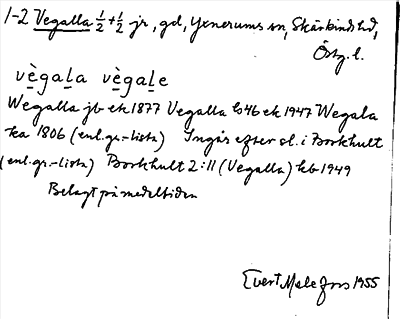 1-2 Vegalla ½ + ½ jr, gd, Yxnerums sn, Skärkinds hd,
Östg. l.
vègala vègale
Wegalla jb ek 1877 Vegalla bl 46 ek 1947 Wegala
ka 1806 (enl. gr.-lista) Ingår efter sl. i Borkhult
(enl. gr.-lista) Borkhult 2:11 (Vegalla) kb 1949
Belagt på medeltiden
Evert Melefors 1955